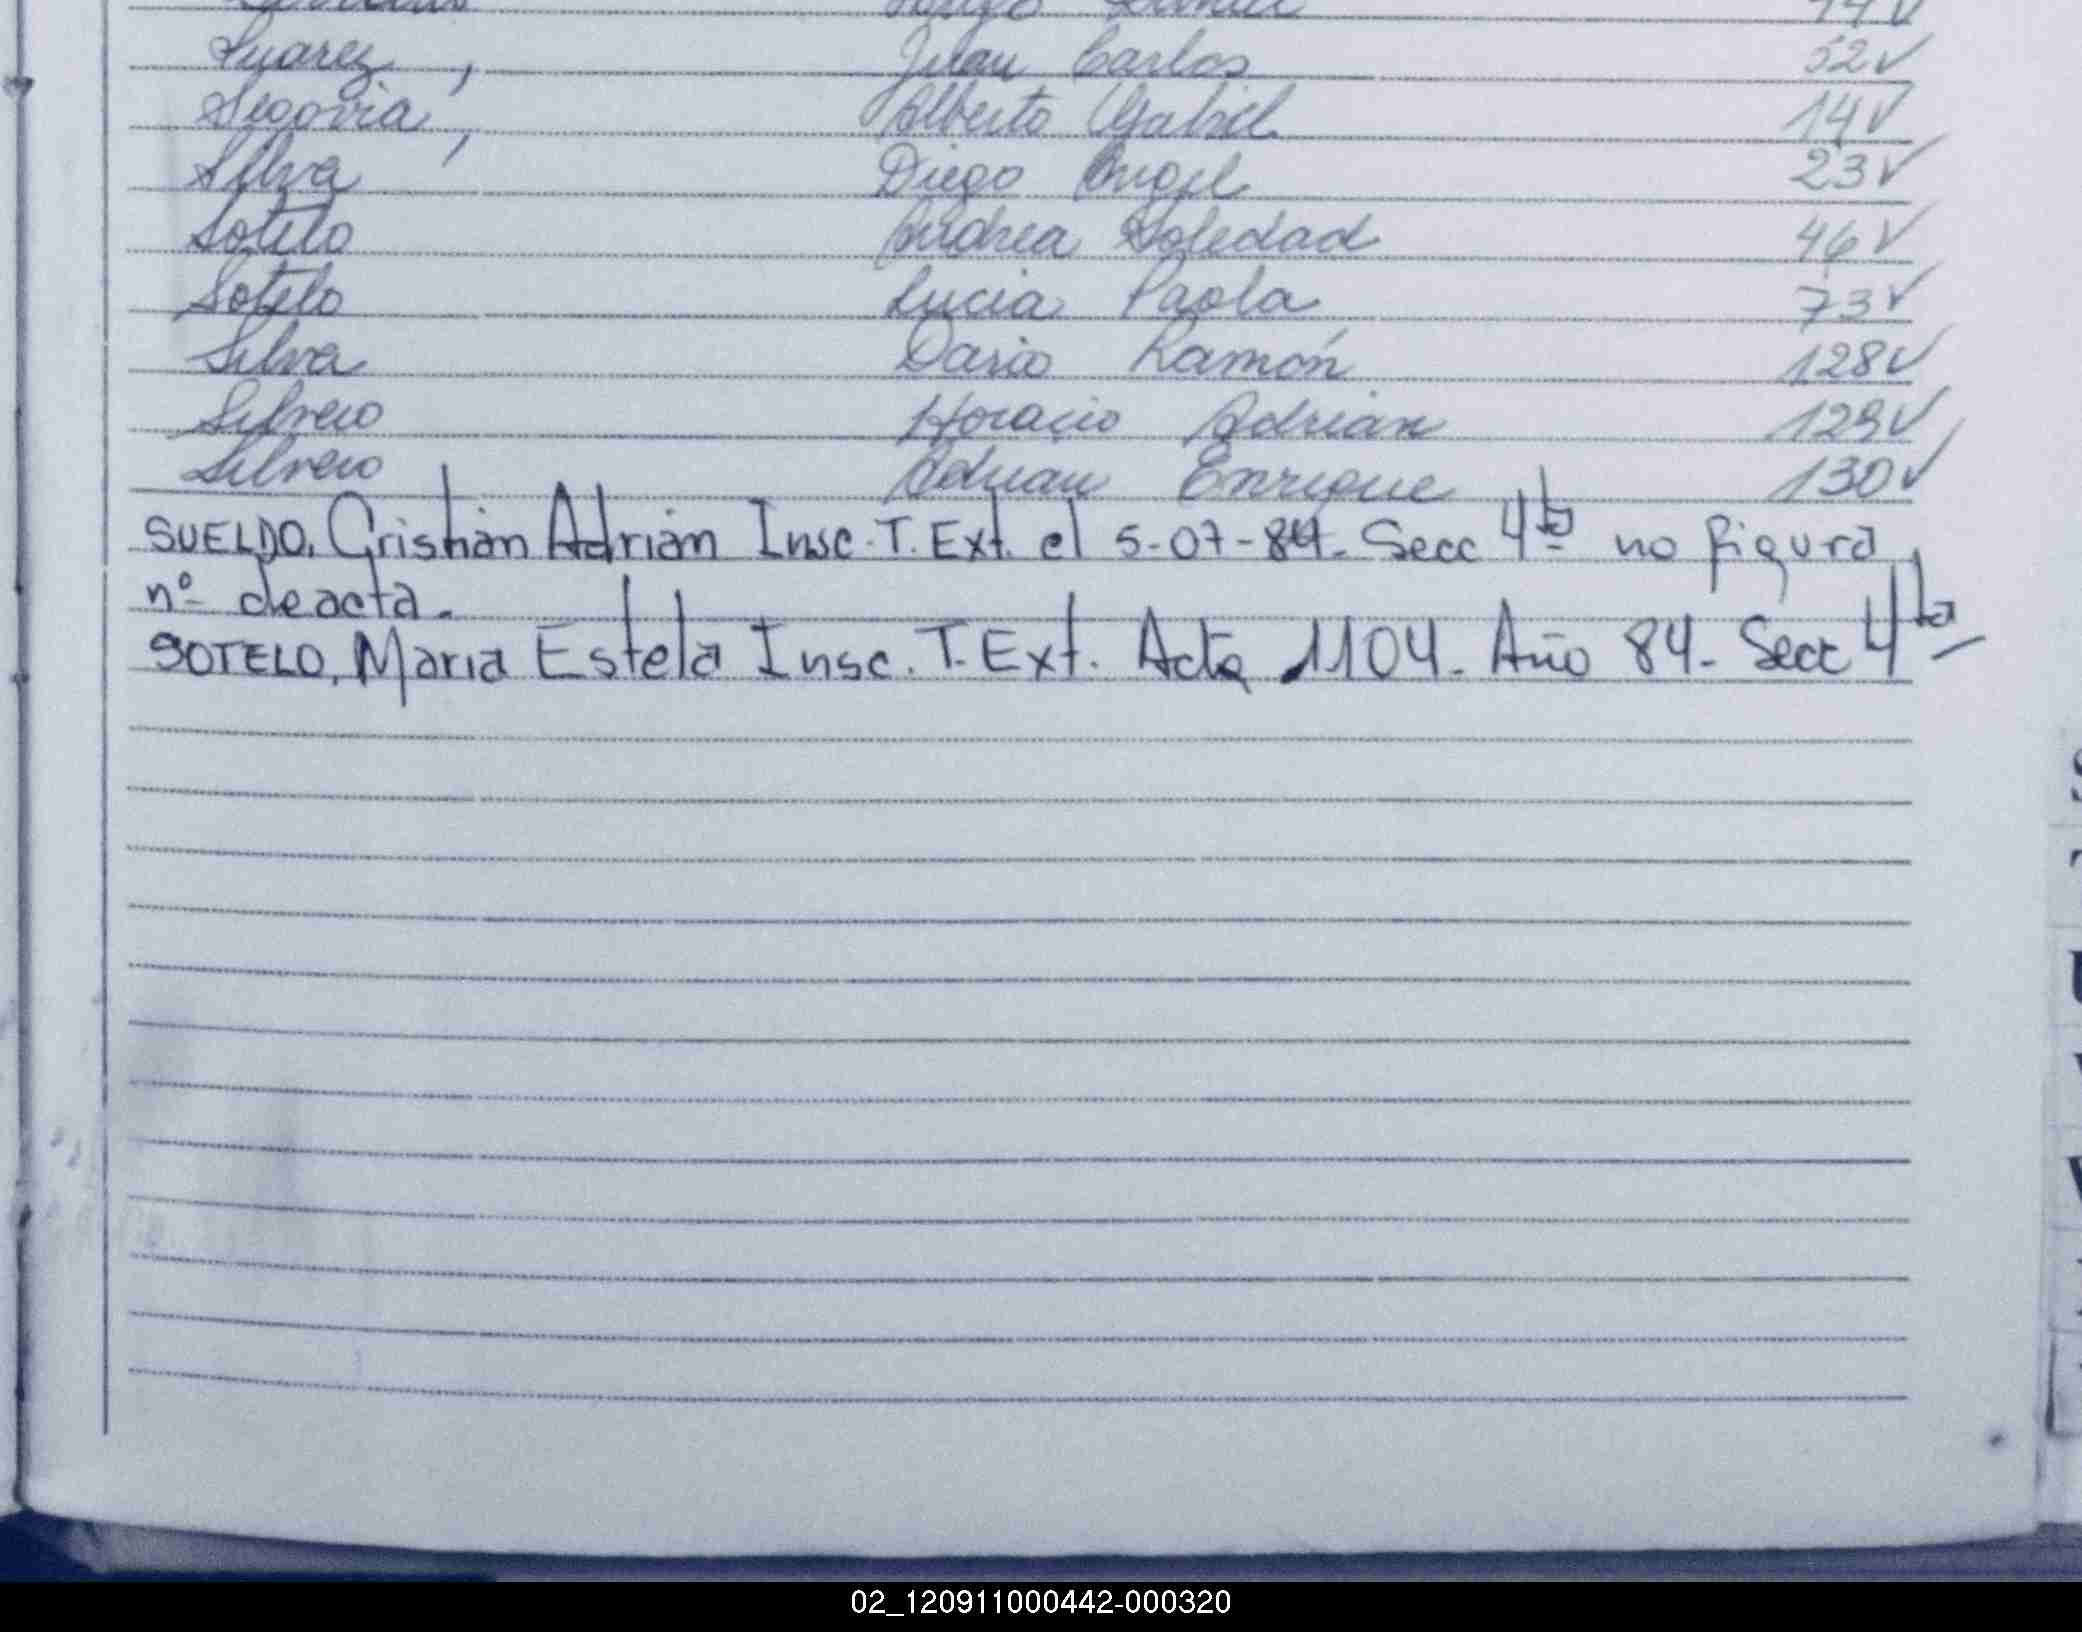 Suarez, Juan Carlos 52 ✓
Segovia, Alberto Gabriel 14 ✓
Silva Diego Angel 23 ✓
Sotelo Andrea Soledad 46 ✓
Sotelo Lucia Paola 73 ✓
Silva Dario Ramón 128 ✓
Silverio Horacio Adrian 129 ✓
Silverio Adrian Enrique 130 ✓
SUELDO, Cristian Adrián Insc. T. Ext. el 5-07-84. Secc 4ta no figura
nº de acta.
SOTELO, Maria Estela Insc. T. Ext. Acta 1104. Año 84. Secc 4ta
02_120911000442-000320